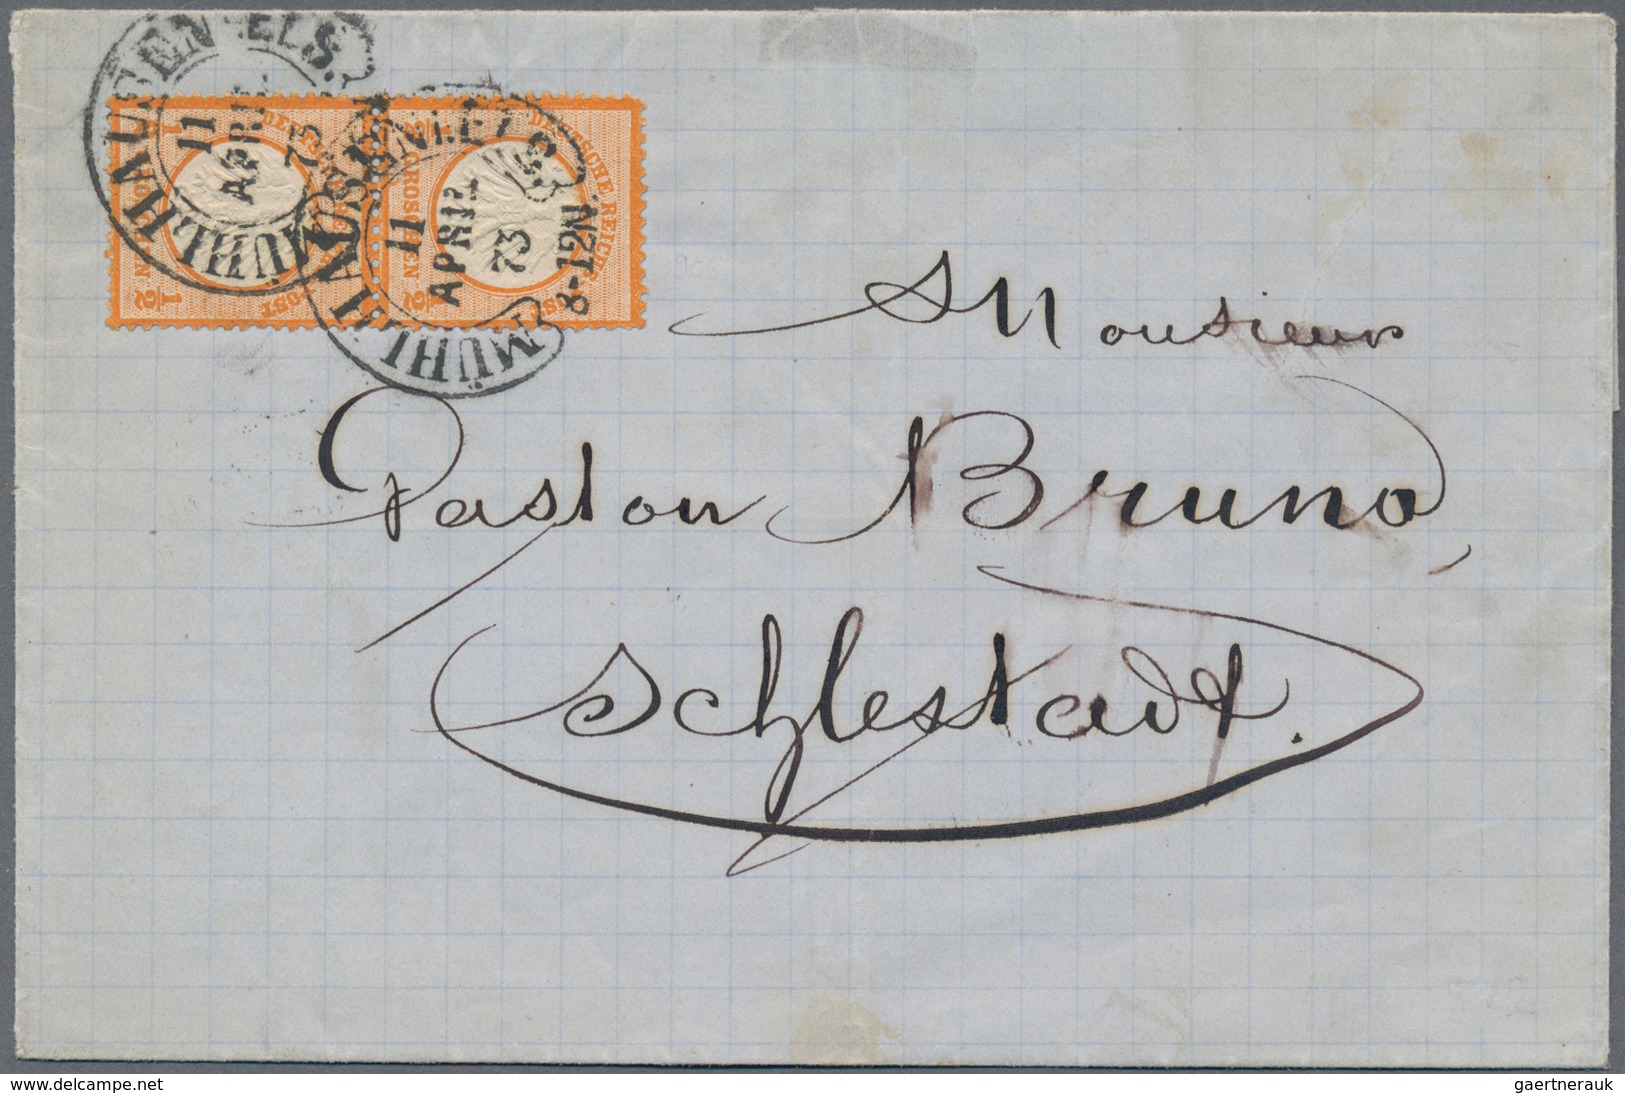 MÜHLHAUSEN I. ELS.
11
APRIL
73
MÜHLHAUSEN I. ELS.
11
APRIL
73
8-12N.
DEUTSCHE REICHS-POST
1/2 GROSCHEN 1/2
DEUTSCHE REICHS-POST
1/2 GROSCHEN 1/2
Monsieur
Pastour Bruno,
Schlestadt.
www.delcampe.net
gaertnerauk